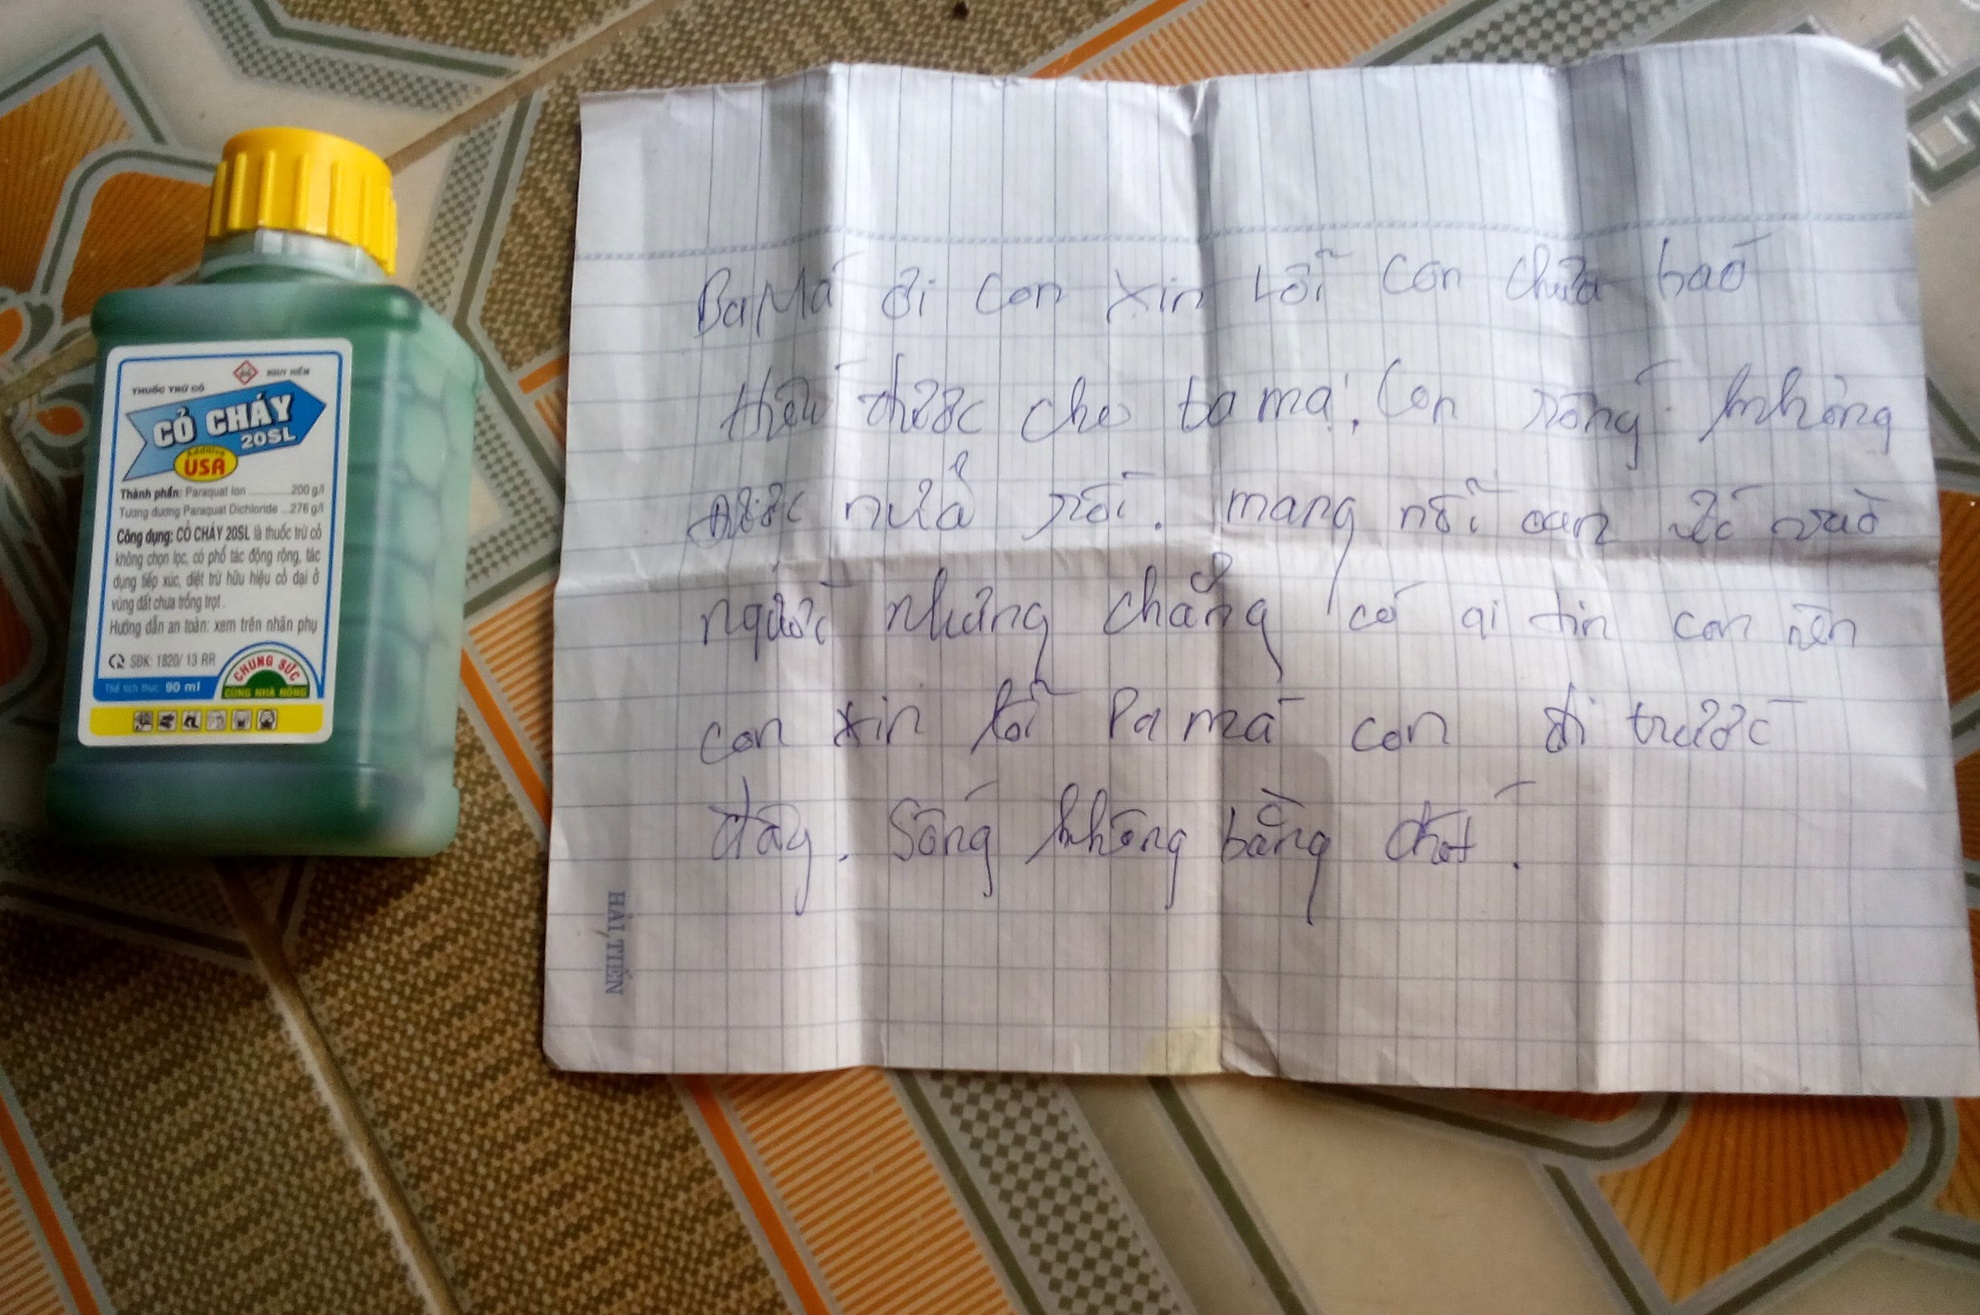 THUỐC TRỪ CỎ
NGUY HIỂM
CỎ CHÁY
20SL
Additive
USA
Thành phần: Paraquat Ion ............ 200 g/l
Tương đương Paraquat Dichloride ... 276 g/l
Công dụng: CỎ CHÁY 20SL là thuốc trừ cỏ
không chọn lọc, có phổ tác động rộng, tác
dụng tiếp xúc, diệt trừ hữu hiệu cỏ dại ở
vùng đất chưa trồng trọt.
Hướng dẫn an toàn: xem trên nhãn phụ
SĐK: 1820/ 13 RR
CHUNG SỨC
CÙNG NHÀ NÔNG
Thể tích thực: 90 ml
Ba Má ơi con xin lỗi con chưa báo
hiếu được cho ba má. Con sống không
được nữa rồi. mang nỗi oan ức vào
người nhưng chẳng có ai tin con nên
con xin lỗi Ba má con đi trước
đây. Sống không bằng chết.
HẢI TIẾN